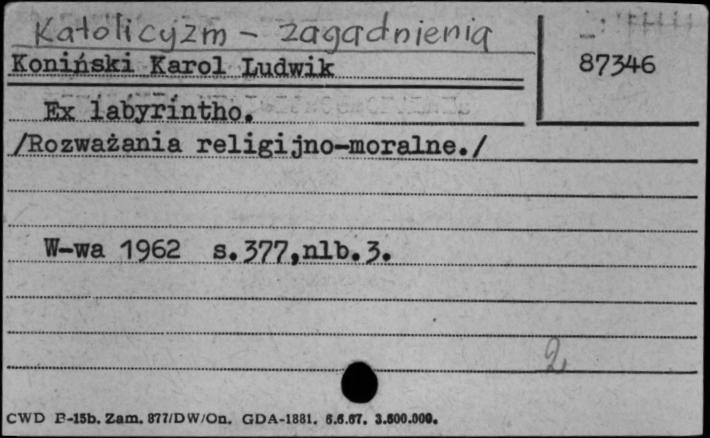 Katolicyzm - zagadnienia
Koniński Karol Ludwik
87346
Ex labyrintho.
/Rozważania religijno-moralne./
W-wa 1962 s.377,nlb.3.
2
CWD B-15b. Zam. 877/DW/On. GDA-1881. 6.6.67. 3.600.000.